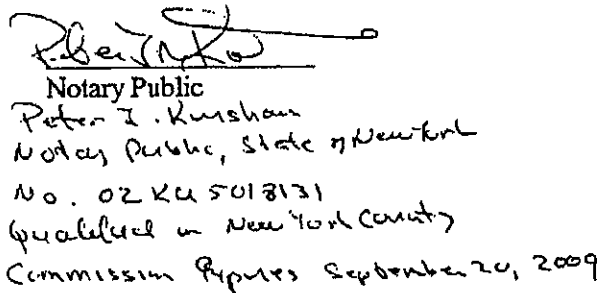 Notary Public
Peter I. Kurshan
Notary Public, State of New York
No. 02KU5018131
Qualified in New York County
Commission Expires September 20, 2009